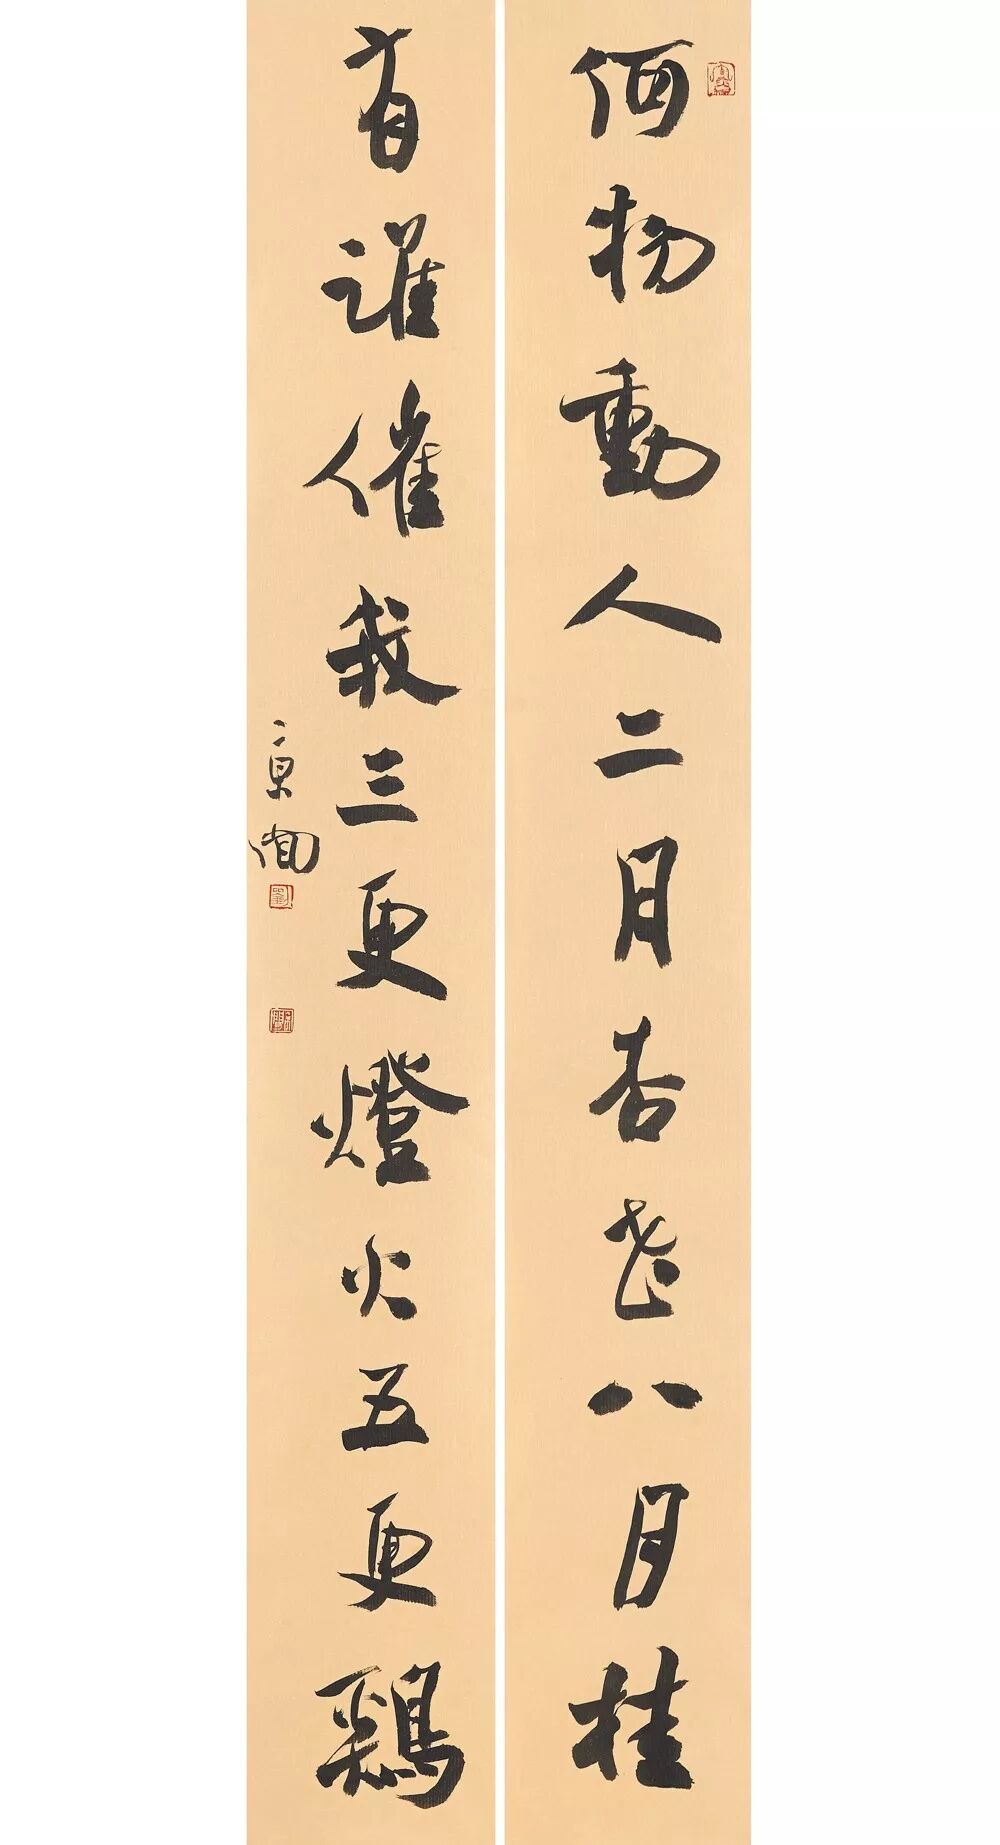 何物動人二月杏花八月桂
有誰催我三更燈火五更鷄
京聞